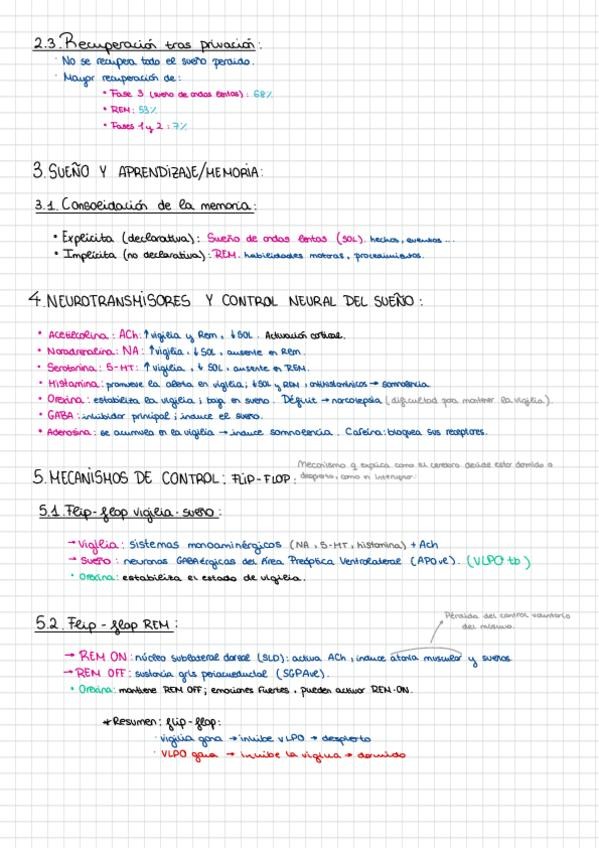 2.3. Recuperación tras privación:
· No se recupera todo el sueño perdido.
· Mayor recuperación de:
• Fase 3 (sueño de ondas lentas): 68%
• REM: 53%
• Fases 1 y 2: 7%
3. SUEÑO Y APRENDIZAJE/MEMORIA:
3.1. Consolidación de la memoria:
• Explícita (declarativa): Sueño de ondas lentas (SOL). hechos, eventos...
• Implícita (no declarativa): REM. habilidades motoras, procedimientos.
4. NEUROTRANSMISORES Y CONTROL NEURAL DEL SUEÑO:
• Acetilcolina: ACh: ↑vigilia y Rem, ↓SOL. Activación cortical.
• Noradrenalina: NA: ↑vigilia, ↓SOL, ausente en Rem.
• Serotonina: 5-HT: ↑vigilia, ↓SOL, ausente en REM.
• Histamina: promueve la alerta en vigilia; ↓SOL y REM, antihistamínicos → somnolencia.
• Orexina: estabiliza la vigilia; baja en sueño. Déficit → narcolepsia (dificultad para mantener la vigilia).
• GABA: inhibidor principal; induce el sueño.
• Adenosina: se acumula en la vigilia → induce somnolencia. Cafeína: bloquea sus receptores.
5. MECANISMOS DE CONTROL: FLIP-FLOP: Mecanismo q explica como el cerebro decide estar dormido o
despierto, como un interruptor.
5.1. Flip-flop vigilia-sueño:
→ Vigilia: sistemas monoaminérgicos (NA, 5-HT, histamina) + Ach
→ Sueño: neuronas GABAérgicas del Área Preóptica Ventrolateral (APOvl). (VLPO tb)
• Orexina: estabiliza el estado de vigilia.
5.2. Flip-flop REM:
Pérdida del control voluntario
del músculo.
→ REM ON: núcleo sublateral dorsal (SLD): activa ACh, induce atonía muscular y sueños.
→ REM OFF: sustancia gris periacueductal (SGPAvl).
• Orexina: mantiene REM OFF; emociones fuertes, pueden activar REM-ON.
* Resumen: flip-flop:
· vigilia gana → inhibe VLPO → despierto
· VLPO gana → inhibe la vigilia → dormido